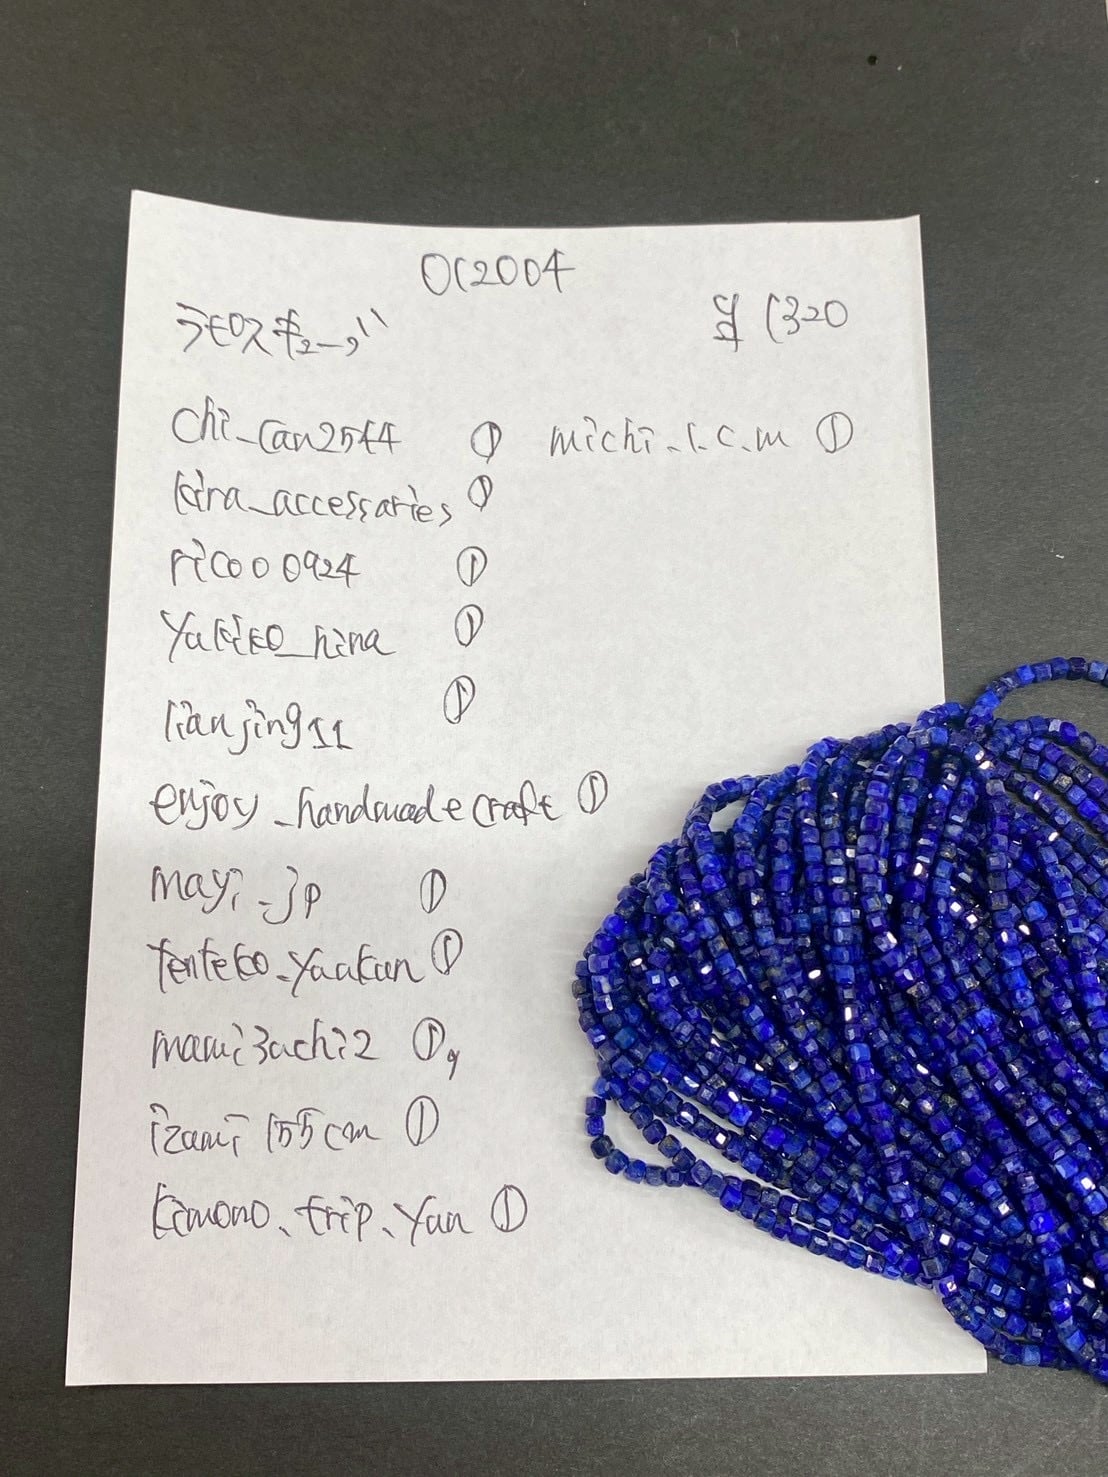 OC2004
ラモスキューブ
1320
chi_can2544 ① michi.l.c.m ①
kira_accessaries ①
ricoo0924 ①
yukiko_hina ①
lianjing11 ①
enjoy_handmadecraft ①
mayi_jp ①
tenteko_yaakun ①
mami3achi2 ①
izami155cm ①
kimono.trip.yan ①